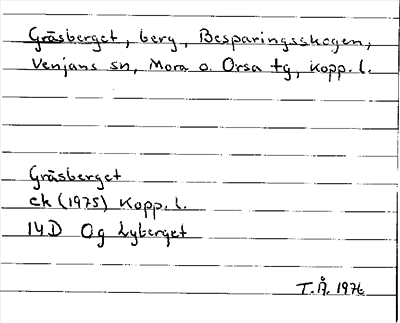 Gråsberget, berg, Besparingsskogen,
Venjans sn, Mora o. Orsa tg, Kopp. l.
Gråsberget
ek (1975) Kopp. l.
14D Og Lyberget
T.Å. 1976